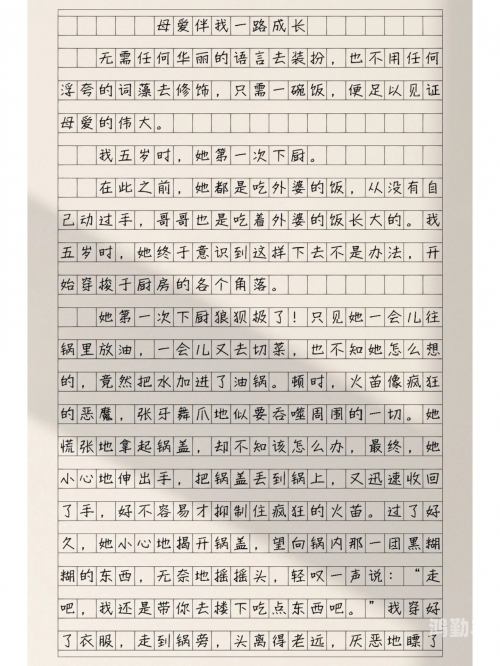 母爱伴我一路成长
无需任何华丽的语言去装扮，也不用任何
浮夸的词藻去修饰，只需一碗饭，便足以见证
母爱的伟大。
我五岁时，她第一次下厨。
在此之前，她都是吃外婆的饭，从没有自
己动过手，哥哥也是吃着外婆的饭长大的。我
五岁时，她终于意识到这样下去不是办法，开
始穿梭于厨房的各个角落。
她第一次下厨狼狈极了！只见她一会儿往
锅里放油，一会儿又去切菜，也不知她怎么想
的，竟然把水加进了油锅。顿时，火苗像疯狂
的恶魔，张牙舞爪地似要吞噬周围的一切。她
慌张地拿起锅盖，却不知该怎么办，最终，她
小心地伸出手，把锅盖丢到锅上，又迅速收回
了手，好不容易才抑制住疯狂的火苗。过了好
久，她小心地揭开锅盖，望向锅内那一团黑糊
糊的东西，无奈地摇摇头，轻叹一声说：“走
吧，我还是带你去楼下吃点东西吧。”我穿好
了衣服，走到锅旁，头离得老远，厌恶地瞟了
鸿勤